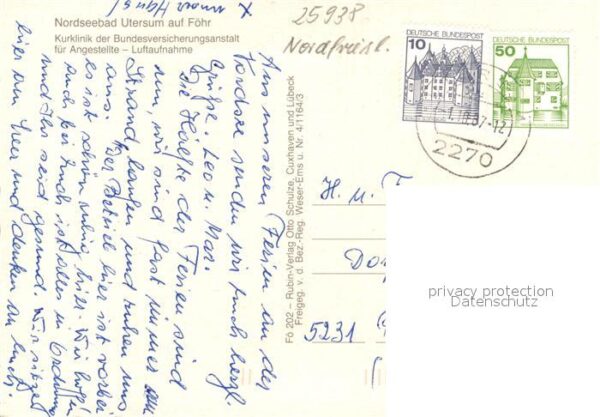 Nordseebad Utersum auf Föhr
Kurklinik der Bundesversicherungsanstalt
für Angestellte – Luftaufnahme
x
25938
Nordfriesl.
DEUTSCHE BUNDESPOST
10
DEUTSCHE BUNDESPOST
50
2270
Fö 202 – Rubin-Verlag Otto Schulze, Cuxhaven und Lübeck
Freigeg. v. d. Bez.-Reg. Weser-Ems u. Nr. 4/1164/3
Aus unseren Ferien an der
Nordsee senden wir Euch herzl.
Grüße. Leo u.
Die Hälfte der Ferien sind
um, wir sind fast immer am
Strand, laufen und ruhen uns
aus. Der Betrieb hier ist vorbei
es ist schön ruhig hier. Wir hoffen
auch bei Euch ist alles in Ordnung
und Ihr seid gesund. Wir sitzen
hier am Meer und denken an Euch.
H. u. F
Do
5231
privacy protection
Datenschutz